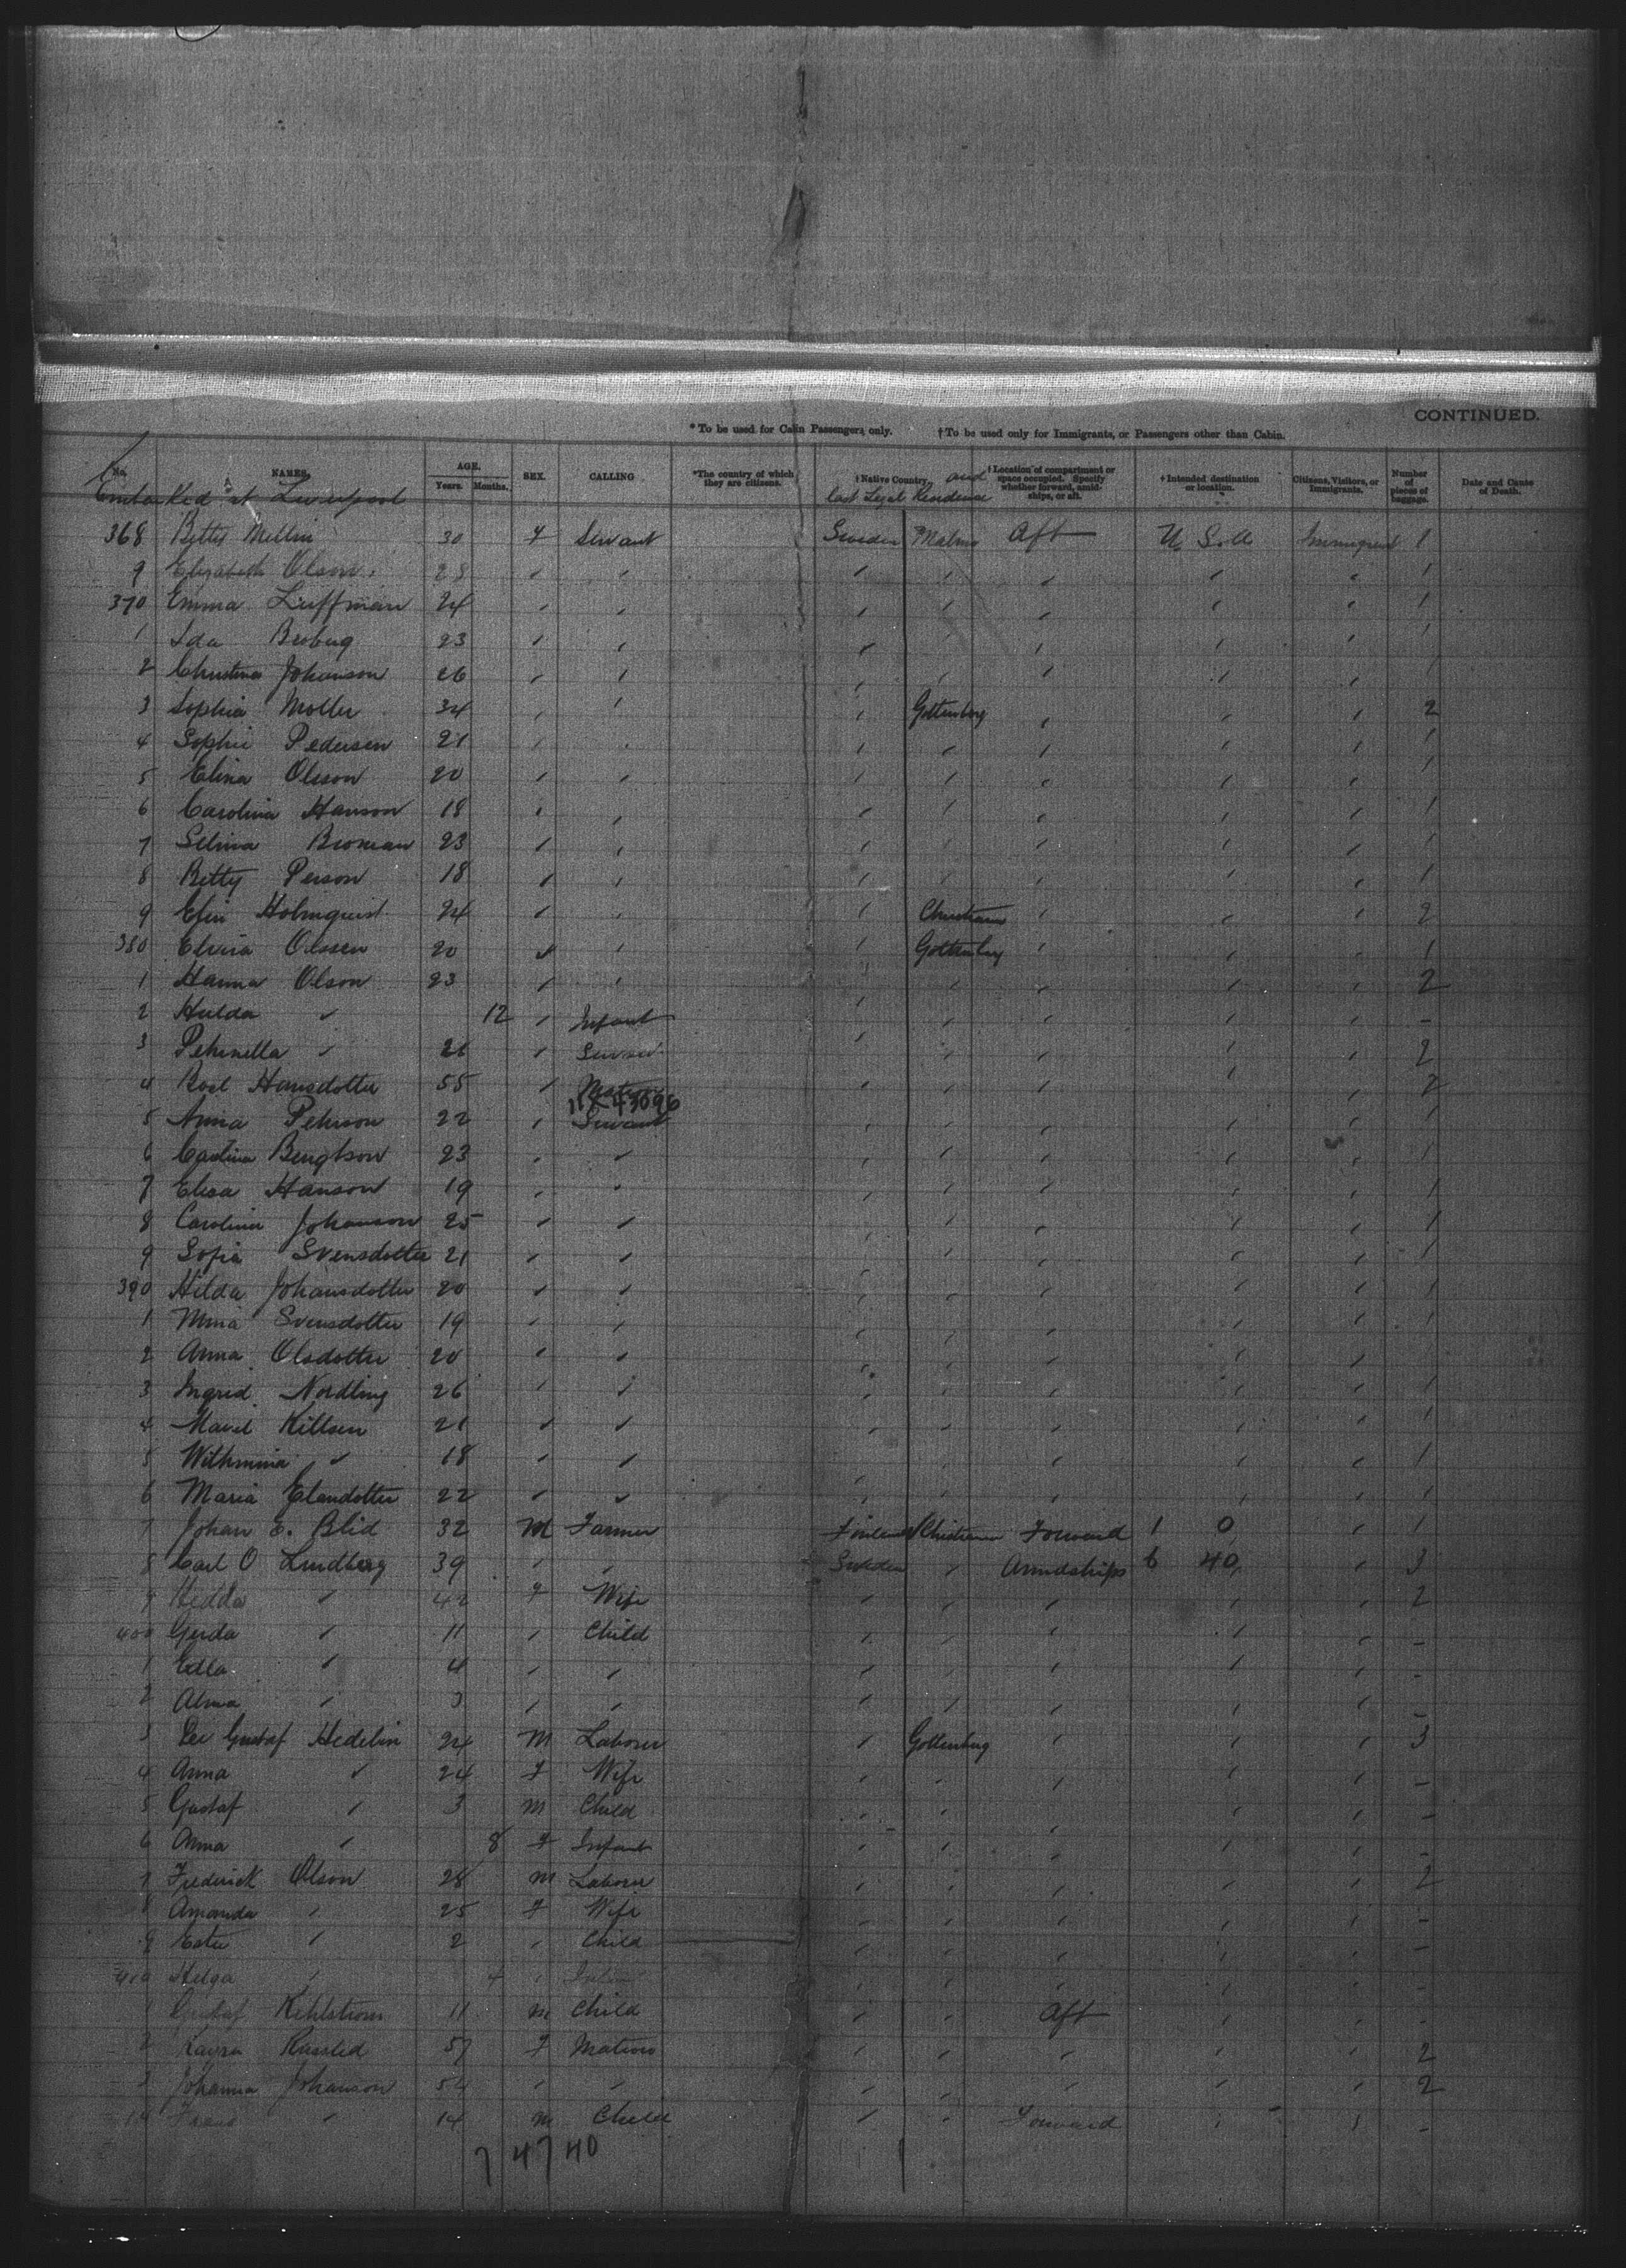 CONTINUED.
* To be used for Cabin Passengers only. † To be used only for Immigrants, or Passengers other than Cabin.
No. NAMES. AGE. Years. Months. SEX. CALLING *The country of which they are citizens. †Native Country and last Legal Residence †Location of compartment or space occupied. Specify whether forward, amidships, or aft. †Intended destination or location. Citizens, Visitors, or Immigrants. Number of pieces of baggage. Date and Cause of Death.
Embarked at Liverpool
368 Mellin 30 F Servant Sweden Malmo Aft U.S.A Immigrant 1
9 Elizabeth Olson 28 " " " " " " " 1
370 Emma Luffman 24 " " " " " " " 1
1 Ida Broberg 23 " " " " " " " 1
2 Christina Johanson 26 " " " " " " " 1
3 Sophia Moller 34 " " " Gottenberg " " " 2
4 Sophie Pedersen 21 " " " " " " " 1
5 Elina Olsson 20 " " " " " " " 1
6 Carolina Hanson 18 " " " " " " " 1
7 Selina Broman 23 " " " " " " " 1
8 Betty Person 18 " " " " " " " 1
9 Elin Holmquist 24 " " " " " " 2
380 Elvira Olssen 20 " " " Gottenberg " " " 1
1 Hanna Olson 23 " " " " " " " 2
2 Hulda " 12 " Infant " " " " " -
3 " 21 " " " " " " 2
4 Hansdotter 55 " Matron " " " " " 2
11 X 43096
5 Anna Pehrson 22 " Servant " " " " " 1
6 Bengtson 23 " " " " " " " 1
7 Elisa Hanson 19 " " " " " " " 1
8 Carolina Johanson 25 " " " " " " " 1
9 Sofia Svensdotter 21 " " " " " " " 1
390 Hilda Johansdotter 20 " " " " " " " 1
1 Mina Svensdotter 19 " " " " " " " 1
2 Anna Olsdotter 20 " " " " " " " 1
3 Ingrid Nordling 26 " " " " " " " 1
4 21 " " " " " " " 1
5 " 18 " " " " " " " 1
6 Maria Elandotter 22 " " " " " " " 1
7 Johan E. Blid 32 M Farmer Forward 1 0 " 1
8 Carl O Lindberg 39 " " Sweden " Amidships 6 40 " 3
9 Hedda " 42 F Wife " " " " " 2
400 Gerda " 11 " Child " " " " " -
1 Edla " 4 " " " " " " " -
2 Alma " 3 " " " " " " " -
3 Per Gustaf Hedelin 24 M Laborer " Gottenberg " " " 3
4 Anna " 24 F Wife " " " " " -
5 Gustaf " 3 M Child " " " " " -
6 Anna " 8 F Infant " " " " " -
7 Frederick Olson 28 M Laborer " " " " " 2
8 Amanda " 25 F Wife " " " " " -
9 Ester " 2 " Child " " " " " -
410 Helga " 4 " Infant " " " " " -
1 Gustaf 11 M Child " " Aft " " -
2 57 F Matron " " " " " 2
3 Johanna Johanson 54 " " " " " " " 2
14 Frans " 14 M Child " " Forward " " -
7 47 40